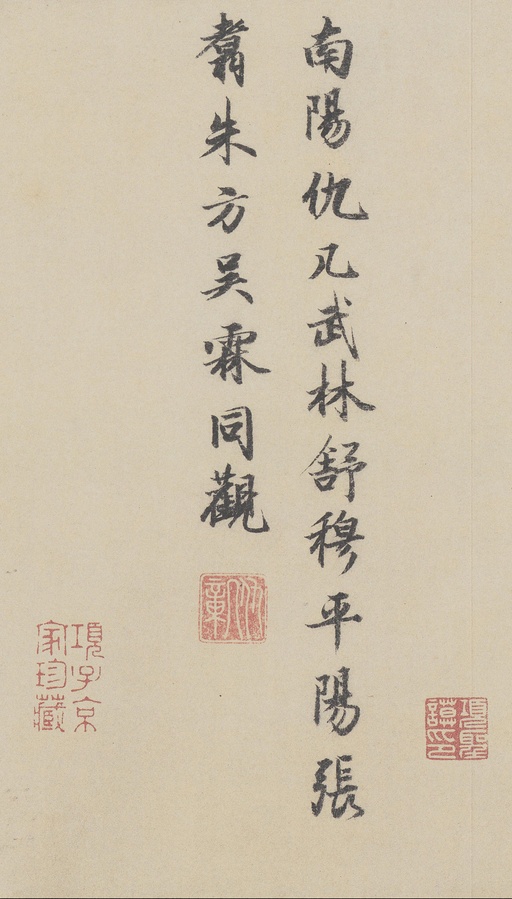 南陽仇几武林舒穆平陽張
翥朱方吳霖同觀
項聖謨印
項子京家珍藏